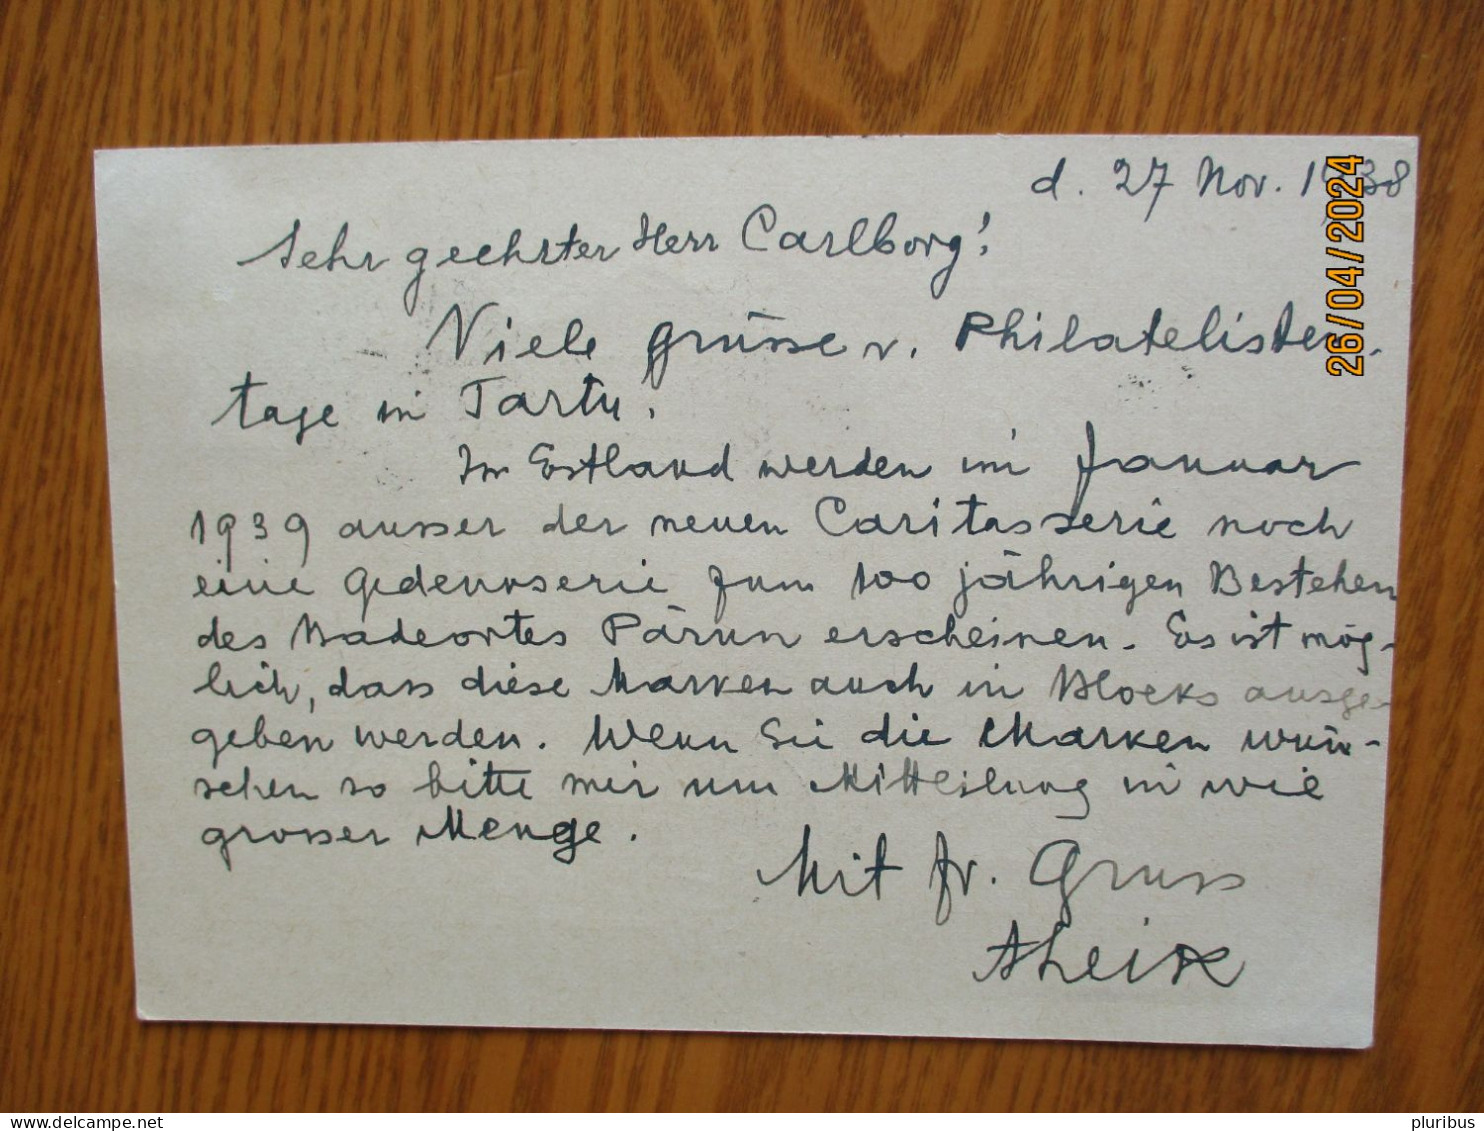 d. 27 Nov. 1938
Sehr geehrter Herr Carlborg!
Viele Grüsse v. Philatelisten-
tage in Tartu!
Im Estland werden im Januar
1939 ausser der neuen Caritasserie noch
eine Gedenkserie zum 100 jährigen Bestehen
des Badeortes Pärnu erscheinen. Es ist mög-
lich, dass diese Marken auch in Blocks ausge-
geben werden. Wenn Sie die Marken wün-
schen so bitte mir um Mitteilung in wie
grosser Menge.
Mit fr. Gruss
26/04/2024
pluribus